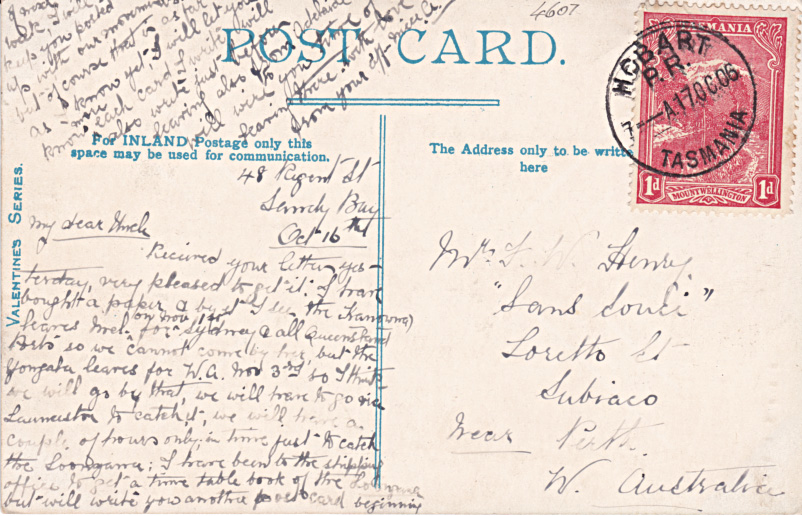 4607
POST CARD.
For INLAND Postage only this
space may be used for communication.
The Address only to be written
here
VALENTINE'S SERIES.
TASMANIA
1d
MOUNT WELLINGTON
1d
HOBART
P.R.
7- A.17.OC.06
TASMANIA
48 Regent St
Sandy Bay
Oct 16th
My dear Uncle
Received your letter yes-
terday, very pleased to get it. I have
bought a paper & by it I see the Kanowna
leaves Mel. on Nov 1st for Sydney & all Queensland
Ports so we cannot come by her, but the
Yongala leaves for W.A. Nov 3rd so I think
we will go by that, we will have to go via
Launceston to catch it, we will have a
couple of hours only, in time just to catch
the Loongana; I have been to the shipping
office to get a time table book of the
but will write you another post card beginning
of next
week, I will
keep you posted
up with our movements
but of course that is as far
as I know yet. I will let you
know each card I write
also write just before
leaving also from Adelaide
will write you
leaving there. with love
from your
Mr. F. W. Henry
"Sans Souci"
Loretto St
Subiaco
Near Perth
W. Australia